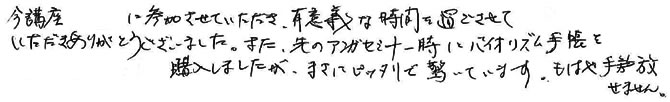 今講座 に参加させていただき、有意義な時間を過ごさせて
いただきありがとうございました。また、先のアンガセミナー時にバイオリズム手帳を
購入しましたが、まさにピッタリで驚いています。もはや手放
せません。